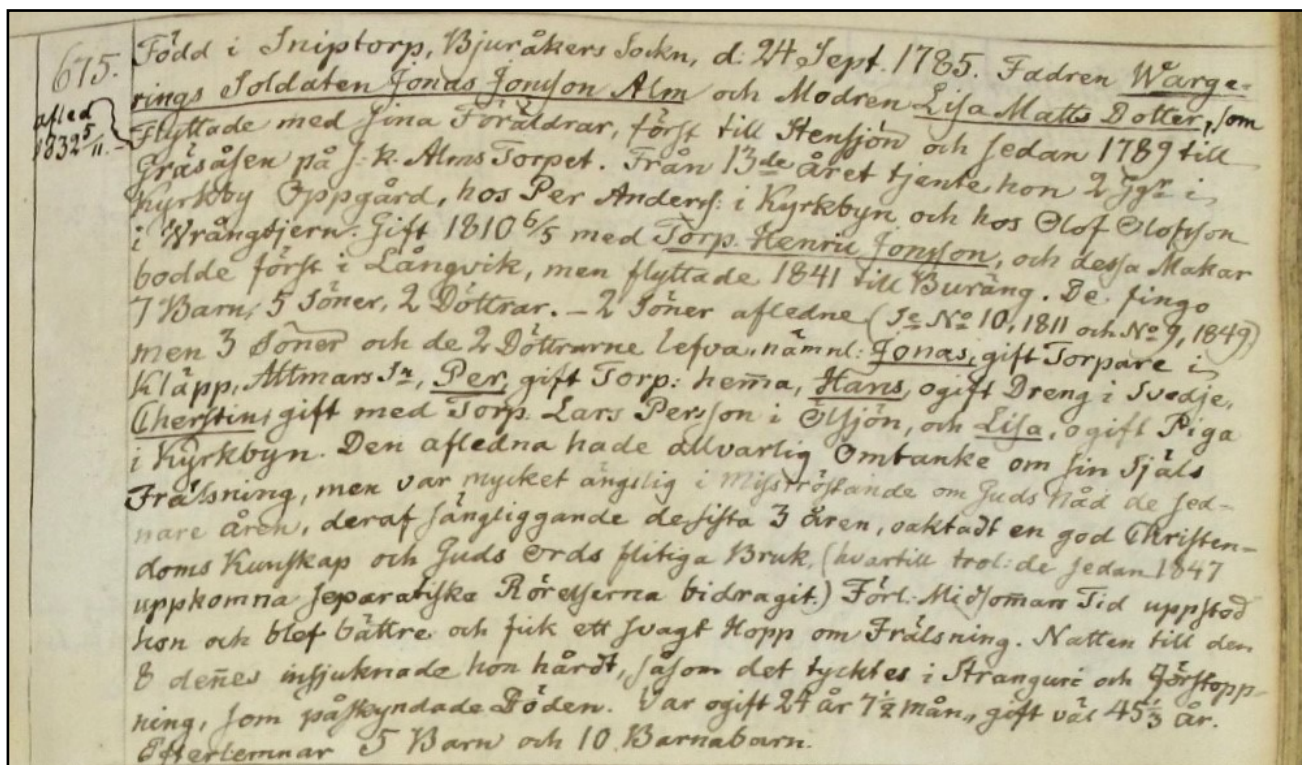 675. Född i Sniptorp, Bjuråkers Sockn, d: 24 Sept. 1785. Fadren Warge-
rings Soldaten Jonas Jonsson Alm och Modren Lisa Matts Dotter, som
afled
Flyttade med sina Föräldrar, först till Stensjön och sedan 1789 till
1832 5/11.
Gräsåsen på s. k. Alms Torpet. Från 13de året tjente hon 2 ggr i
Kyrkby Oppgård, hos Per Anders: i Kyrkbyn och hos Olof Olofsson
i Wrångtjern. Gift 1810 6/5 med Torp. Henric Jonsson, och dessa Makar
bodde först i Långvik, men flyttade 1841 till Buräng. De fingo
7 Barn, 5 Söner, 2 Döttrar. – 2 Söner afledne (Se No 10, 1811 och No 9, 1849)
men 3 Söner och de 2 Döttrarne lefva, nämnl: Jonas, gift Torpare i
Kläpp, Attmars Sn, Per, gift Torp: hem̄a, Hans, ogift Dreng i Svedje,
Cherstin, gift med Torp. Lars Persson i Ölsjön, och Lisa, ogift Piga
i Kyrkbyn. Den afledna hade allvarlig Omtanke om sin Själs
Frälsning, men var mycket ängslig i misströstande om Guds Nåd de sed-
nare åren, deraf sängliggande de sista 3 åren, oaktadt en god Christen-
doms Kunskap och Guds Ords flitiga Bruk, (hvartill trol: de sedan 1847
uppkomna separatiska Rörelserna bidragit.) Förl. Midsom̄ars Tid uppstod
hon och blef bättre och fick ett svagt Hopp om Frälsning. Natten till den
8 den̄es insjuknade hon hårdt, såsom det tycktes i Stranguri och Förstopp-
ning, som påskyndade Döden. Var ogift 24 år 7½ mån., gift väl 45⅓ år.
Efterlemnar 5 Barn och 10 Barnabarn.